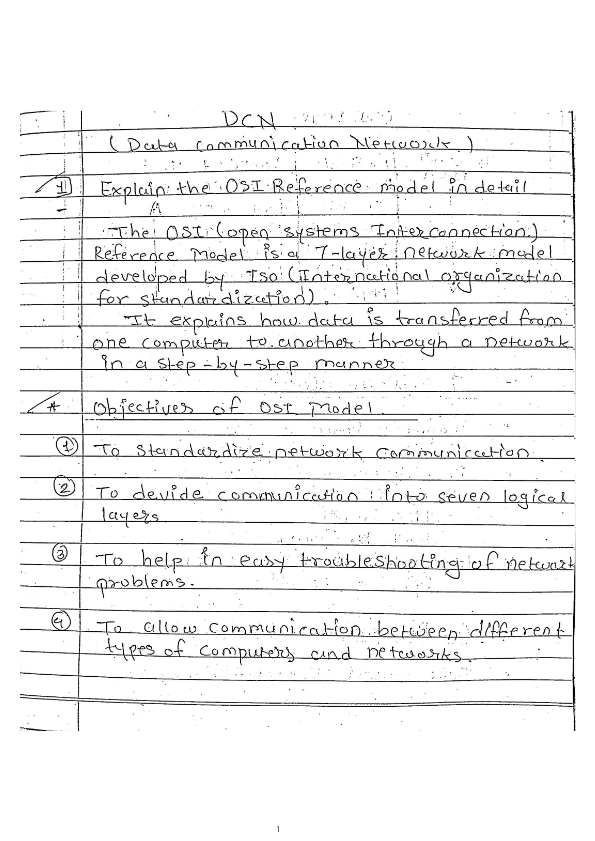 DCN
(Data Communication Network)
1 Explain the OSI Reference model in detail
A
The OSI (open systems Interconnection)
Reference Model is a 7-layer network model
developed by Iso (International organization
for standardization).
It explains how data is transferred from
one computer to another through a network
in a step-by-step manner
* Objectives of OSI Model
① To standardize network communication.
② To devide communication into seven logical
layers
③ To help in easy troubleshooting of network
problems.
④ To allow communication between different
types of computers and networks.
1